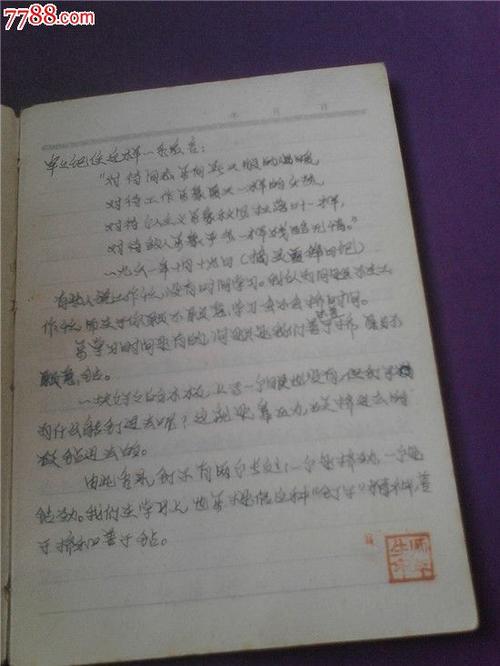 7788.com
中国收藏热线
年 月 日
牢记住这样一条名言:
"对待同志要向春天般的温暖,
对待工作要象夏天一样的火热,
对待个人主义要象秋风扫落叶一样,
对待敌人要象严冬一样残酷无情。"
一九六一年十月十九日(摘之雷锋日记)
有些人说工作忙,没有时间学习。我认为问题不在工
作忙,而在于你愿不愿意学习,会不会挤时间。
要学习时间是有的,问题是我们善于挤,愿不
愿意钻。
一块好好的木板,上面一个眼也没有,但钉子
为什么能钉进去呢?这就是靠压力,硬挤进去的,
硬钻进去的。
由此看来,钉子有两个长处:一个是挤劲,一个是
钻劲。我们在学习上,也要提倡这种"钉子"精神,善
于挤和善于钻。